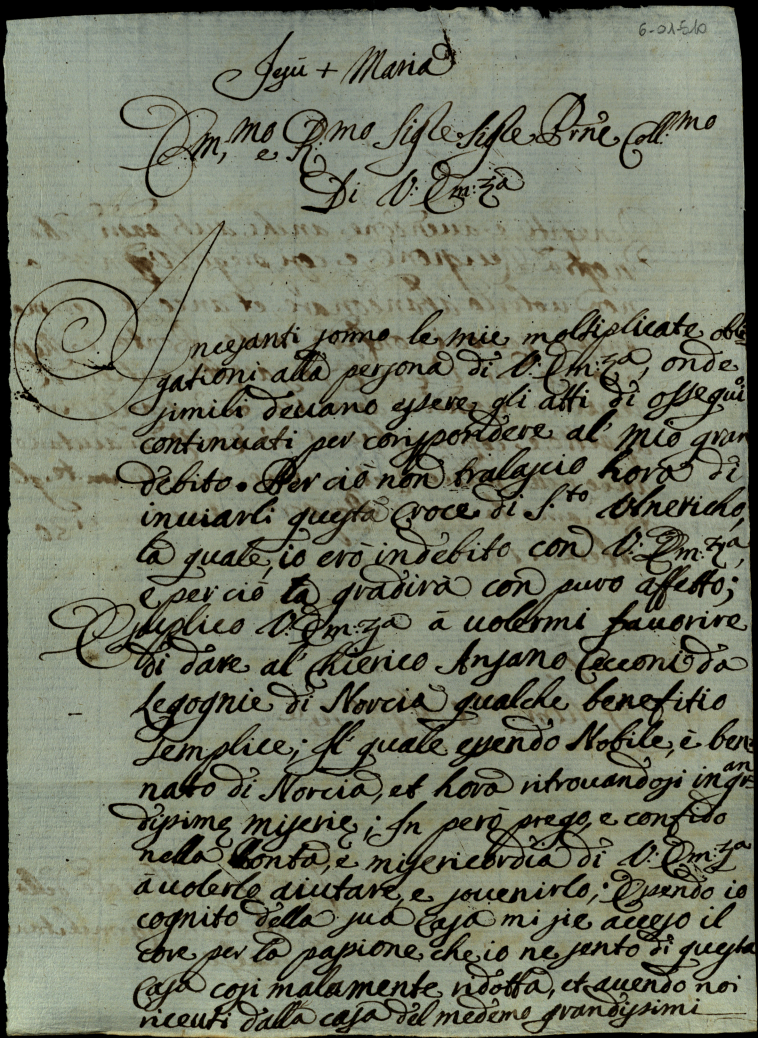 6-01-510
Jesù + Maria
Em,mo e R.mo Sig.le Sig.le Prne Coll.mo
Di V: Em:za
Incessanti sonno le mie moltiplicate obli
gationi alla persona di V: Em:za, onde
simili deuano essere gli atti di ossequio
continuati per corrispondere al' mio gran
debito. Per ciò non tralascio hora di
inuiarli questa Croce di S.to Vlnericho,
la quale, io erò indebito con V: Em:za,
e per ciò la gradirà con puro affetto;
Suplico V: Em:za à uolermi fauorire
di dare al' Chierico Ansano Cecconi da
Legognie di Norcia qualche benefitio
semplice; Il' quale essendo Nobile, è ben
nato di Norcia, et hora ritrouandosi in gran
dissime miserie; In però prego, e confido
nella bontà, e misericordia di V: Em:za
à uolerlo aiutare, e souenirlo; Essendo io
cognito della sua Casa mi sie acceso il
core per la passione che io ne sento di questa
Casa così malamente ridotta, et auendo noi
riceuti dalla casa del medemo grandissimi